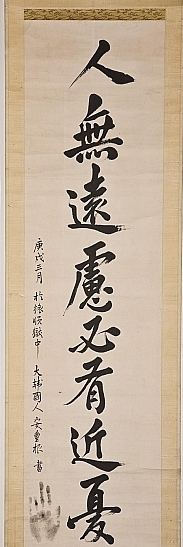 人無遠慮必有近憂
庚戌三月 於旅順獄中 大韓國人 安重根 書